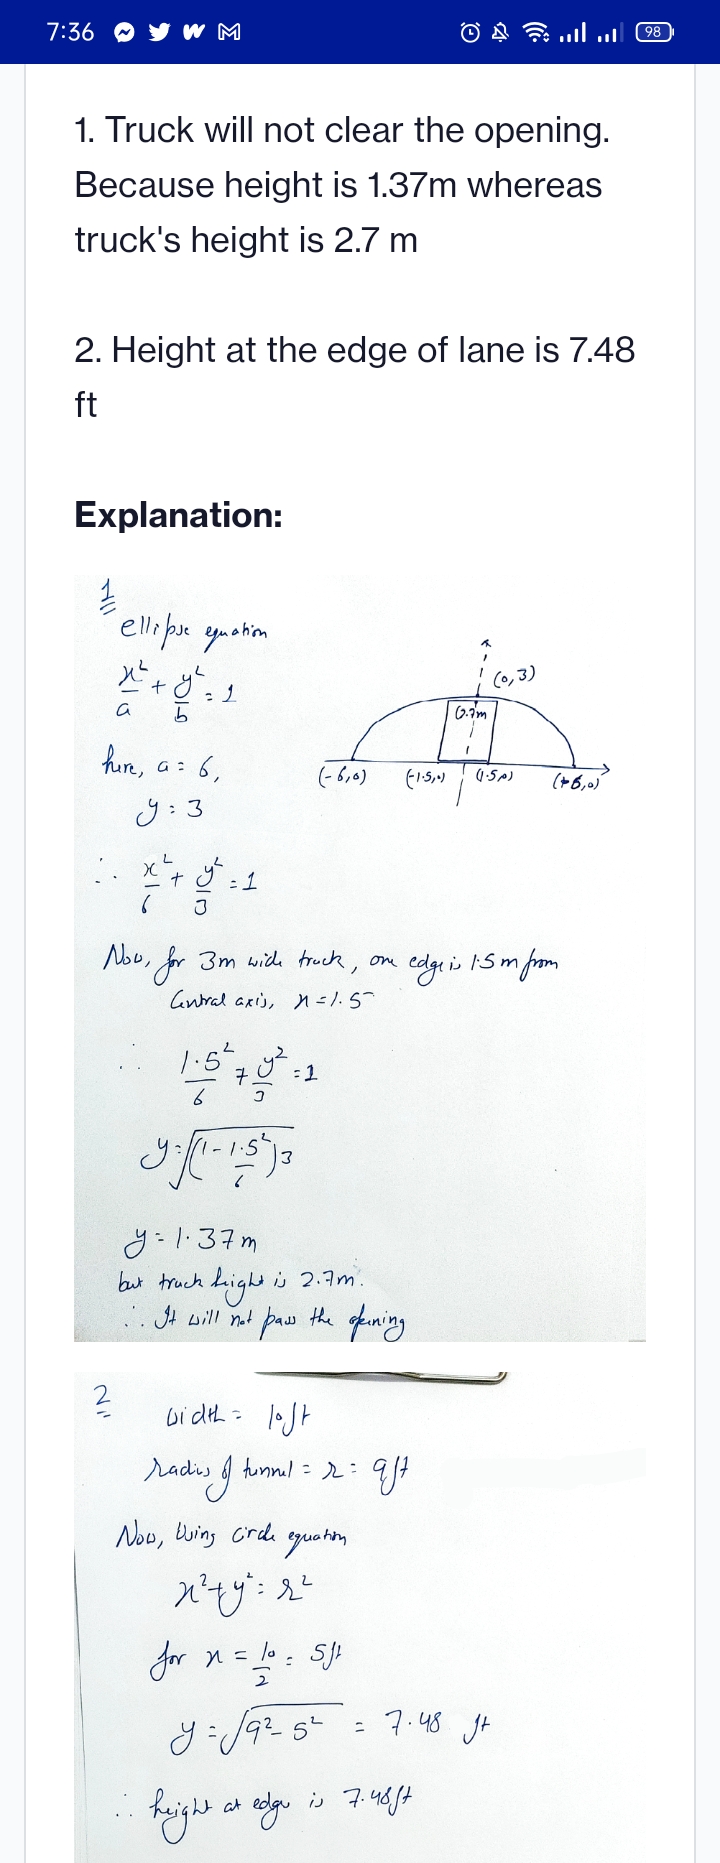 7:36
98
1. Truck will not clear the opening.
Because height is 1.37m whereas
truck's height is 2.7 m
2. Height at the edge of lane is 7.48
ft
Explanation:
1
ellipse equation
x²/a + y²/b = 1
(0,3)
2.7m
(-6,0) (-1.5,0) (1.5,0) (+6,0)
here, a = 6,
y = 3
∴ x²/6 + y²/3 = 1
Now, for 3m wide truck, one edge is 1.5 m from
Central axis, x = 1.5
∴ 1.5²/6 + y²/3 = 1
y = √(1 - 1.5²/6)3
y = 1.37m
but truck height is 2.7m.
∴ It will not pass the opening
2
width = 10ft
radius of tunnel = r = 9ft
Now, Using Circle equation
x² + y² = r²
for x = 10/2 = 5ft
y = √9² - 5² = 7.48 ft
∴ height at edge is 7.48ft